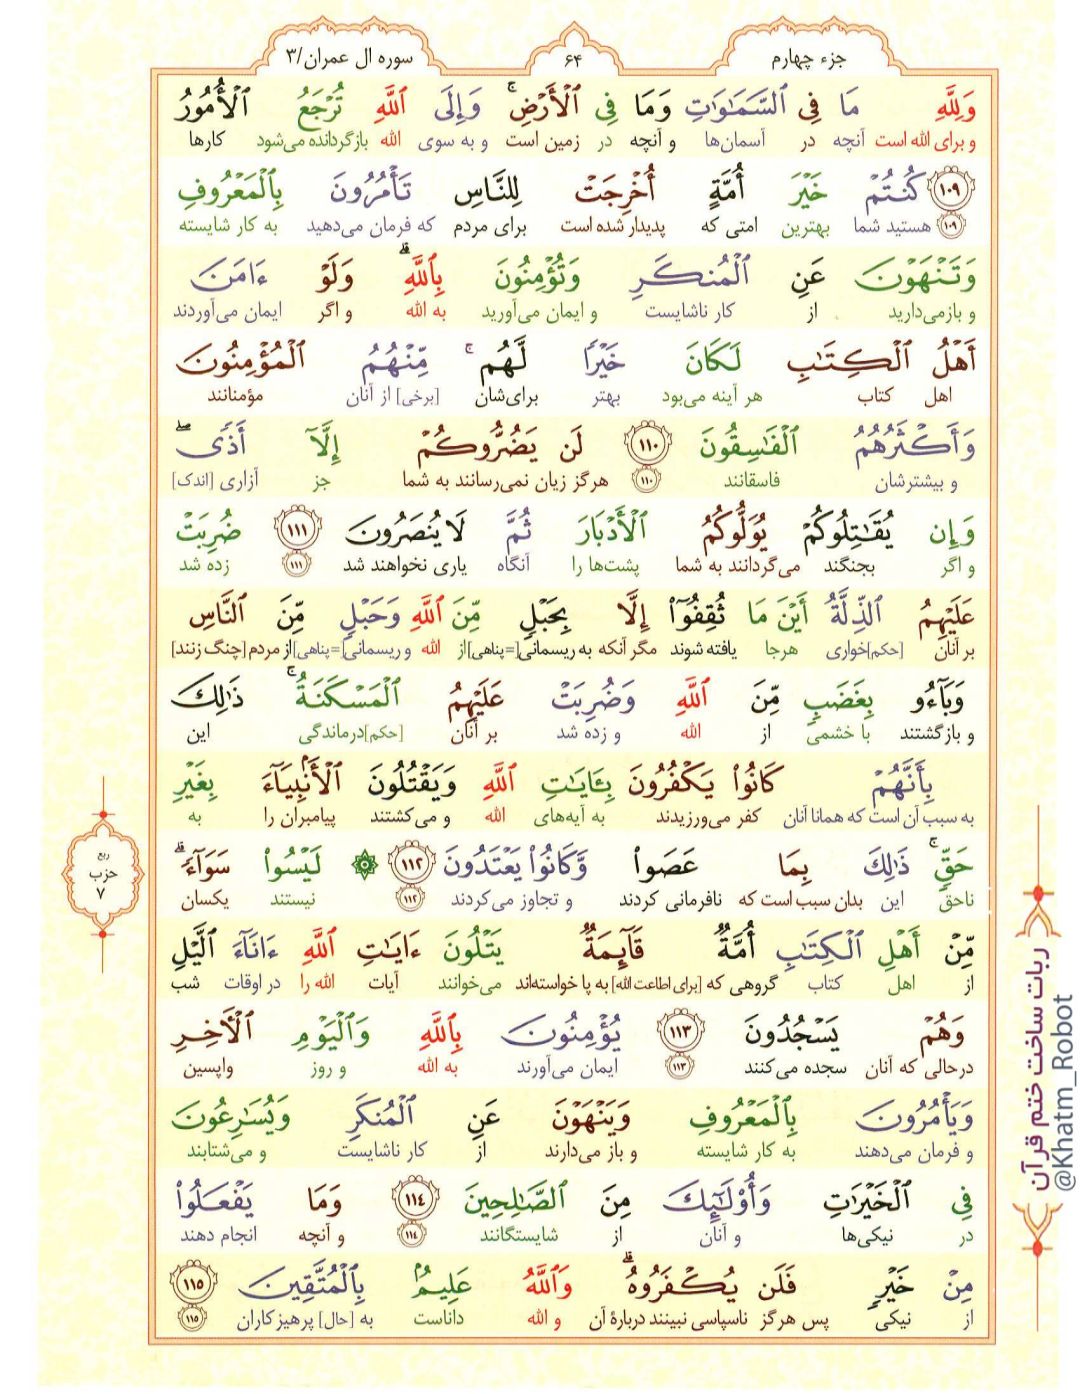 جزء چهارم
۶۴
سوره ال عمران/۳
وَلِلَّهِ مَا فِي ٱلسَّمَٰوَٰتِ وَمَا فِي ٱلْأَرْضِ ۚ وَإِلَى ٱللَّهِ تُرْجَعُ ٱلْأُمُورُ
و برای الله است آنچه در آسمان‌ها و آنچه در زمین است و به سوی الله بازگردانده می‌شود کارها
١٠٩ كُنتُمْ خَيْرَ أُمَّةٍ أُخْرِجَتْ لِلنَّاسِ تَأْمُرُونَ بِٱلْمَعْرُوفِ
١٠٩ هستید شما بهترین امتی که پدیدار شده است برای مردم که فرمان می‌دهید به کار شایسته
وَتَنْهَوْنَ عَنِ ٱلْمُنكَرِ وَتُؤْمِنُونَ بِٱللَّهِ ۗ وَلَوْ ءَامَنَ
و بازمی‌دارید از کار ناشایست و ایمان می‌آورید به الله و اگر ایمان می‌آوردند
أَهْلُ ٱلْكِتَٰبِ لَكَانَ خَيْرًا لَّهُم ۚ مِّنْهُمُ ٱلْمُؤْمِنُونَ
اهل کتاب هر آینه می‌بود بهتر برای‌شان [برخی] از آنان مؤمنانند
وَأَكْثَرُهُمُ ٱلْفَٰسِقُونَ ١١٠ لَن يَضُرُّوكُمْ إِلَّآ أَذًى ۖ
و بیشترشان فاسقانند ١١٠ هرگز زیان نمی‌رسانند به شما جز آزاری [اندک]
وَإِن يُقَٰتِلُوكُمْ يُوَلُّوكُمُ ٱلْأَدْبَارَ ثُمَّ لَا يُنصَرُونَ ١١١ ضُرِبَتْ
و اگر بجنگند می‌گردانند به شما پشت‌ها را آنگاه یاری نخواهند شد ١١١ زده شد
عَلَيْهِمُ ٱلذِّلَّةُ أَيْنَ مَا ثُقِفُوٓا۟ إِلَّا بِحَبْلٍ مِّنَ ٱللَّهِ وَحَبْلٍ مِّنَ ٱلنَّاسِ
بر آنان [حکم] خواری هرجا یافته شوند مگر آنکه به ریسمانی [=پناهی] از الله و ریسمانی [=پناهی] از مردم [چنگ زنند]
وَبَآءُو بِغَضَبٍ مِّنَ ٱللَّهِ وَضُرِبَتْ عَلَيْهِمُ ٱلْمَسْكَنَةُ ۚ ذَٰلِكَ
و بازگشتند با خشمی از الله و زده شد بر آنان [حکم] درماندگی این
بِأَنَّهُمْ كَانُوا۟ يَكْفُرُونَ بِـَٔايَٰتِ ٱللَّهِ وَيَقْتُلُونَ ٱلْأَنۢبِيَآءَ بِغَيْرِ
به سبب آن است که همانا آنان کفر می‌ورزیدند به آیه‌های الله و می‌کشتند پیامبران را به
حَقٍّ ۚ ذَٰلِكَ بِمَا عَصَوا۟ وَّكَانُوا۟ يَعْتَدُونَ ١١٢ ۞ لَيْسُوا۟ سَوَآءً ۗ
ناحق این بدان سبب است که نافرمانی کردند و تجاوز می‌کردند ١١٢ نیستند یکسان
مِّنْ أَهْلِ ٱلْكِتَٰبِ أُمَّةٌ قَآئِمَةٌ يَتْلُونَ ءَايَٰتِ ٱللَّهِ ءَانَآءَ ٱلَّيْلِ
از اهل کتاب گروهی که [برای اطاعت الله] به پا خواسته‌اند می‌خوانند آیات الله را در اوقات شب
وَهُمْ يَسْجُدُونَ ١١٣ يُؤْمِنُونَ بِٱللَّهِ وَٱلْيَوْمِ ٱلْءَاخِرِ
درحالی که آنان سجده می‌کنند ١١٣ ایمان می‌آورند به الله و روز واپسین
وَيَأْمُرُونَ بِٱلْمَعْرُوفِ وَيَنْهَوْنَ عَنِ ٱلْمُنكَرِ وَيُسَٰرِعُونَ
و فرمان می‌دهند به کار شایسته و باز می‌دارند از کار ناشایست و می‌شتابند
فِي ٱلْخَيْرَٰتِ وَأُو۟لَٰٓئِكَ مِنَ ٱلصَّٰلِحِينَ ١١٤ وَمَا يَفْعَلُوا۟
در نیکی‌ها و آنان از شایستگانند ١١٤ و آنچه انجام دهند
مِنْ خَيْرٍ فَلَن يُكْفَرُوهُ ۗ وَٱللَّهُ عَلِيمٌۢ بِٱلْمُتَّقِينَ ١١٥
از نیکی پس هرگز ناسپاسی نبینند دربارهٔ آن و الله داناست به [حال] پرهیزکاران ١١٥
ربع
حزب
۷
ربات ساخت ختم قرآن
@Khatm_Robot